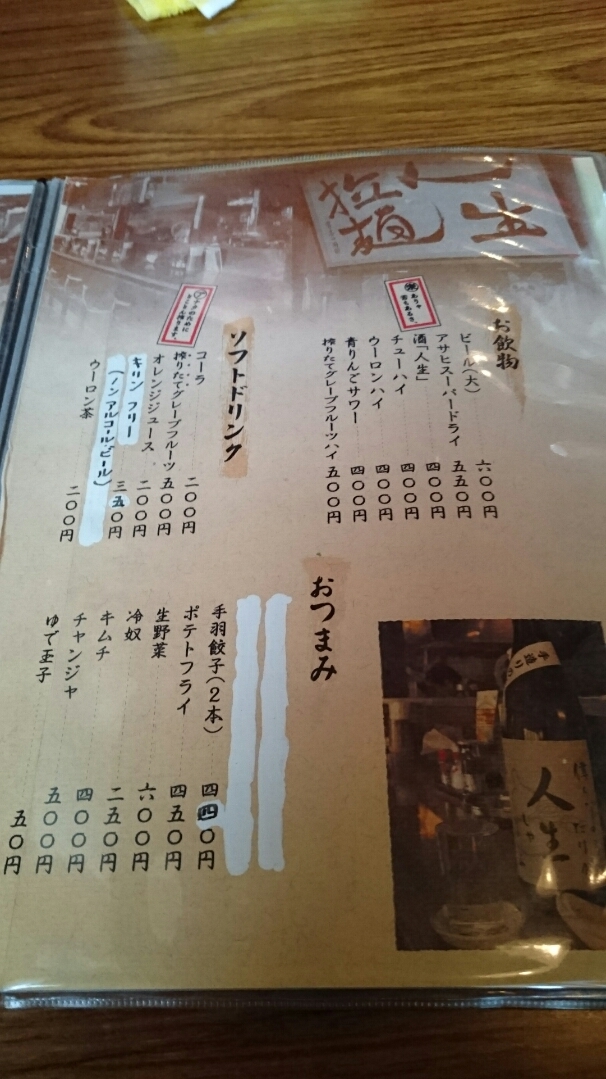 人生
拉麺
お飲物
ビール(大) 六〇〇円
アサヒスーパードライ 五五〇円
酒「人生」 四〇〇円
チューハイ 四〇〇円
ウーロンハイ 四〇〇円
青りんごサワー 四〇〇円
搾りたてグレープフルーツハイ 五〇〇円
ソフトドリンク
コーラ 二〇〇円
搾りたてグレープフルーツ 五〇〇円
オレンジジュース 二〇〇円
キリン フリー
(ノンアルコールビール) 三五〇円
ウーロン茶 二〇〇円
おつまみ
手羽餃子(2本) 四四〇円
ポテトフライ 四五〇円
生野菜 六〇〇円
冷奴 二五〇円
キムチ 四〇〇円
チャンジャ 五〇〇円
ゆで玉子 五〇円
手造り
人生